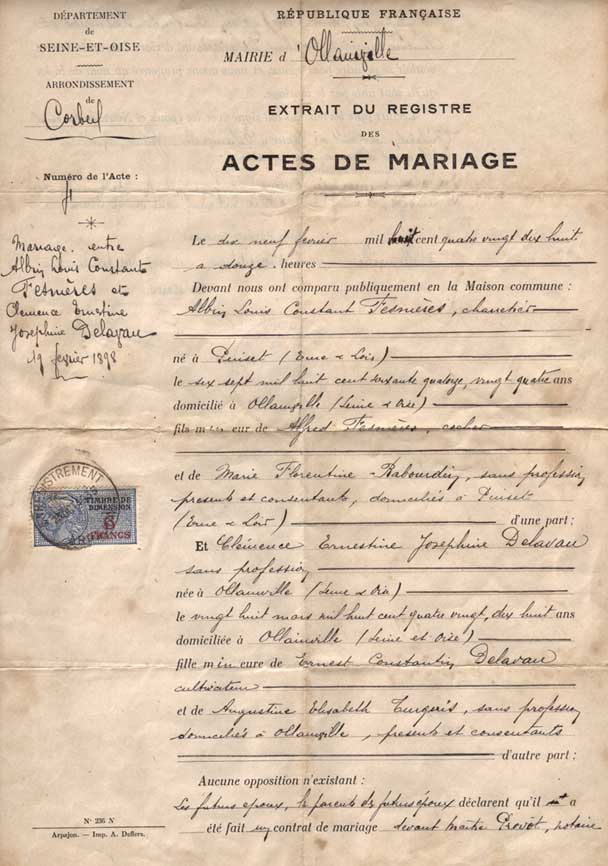 DÉPARTEMENT
de
SEINE-ET-OISE
ARRONDISSEMENT
de
Corbeil
Numéro de l'Acte :
Mariage entre
Albin Louis Constant
Fesnières et
Clemence Ernestine
Josephine Delavau
19 fevrier 1898
ENREGISTREMENT
TIMBRE DE
DIMENSION
6
FRANCS
RÉPUBLIQUE FRANÇAISE
MAIRIE d'Ollainville
EXTRAIT DU REGISTRE
DES
ACTES DE MARIAGE
Le dix neuf fevrier mil huit cent quatre vingt dix huit
a onze heures
Devant nous ont comparu publiquement en la Maison commune :
Albin Louis Constant Fesnières, charretier
né à Puiset (Eure & Loir)
le six sept mil huit cent soixante quatorze, vingt quatre ans
domicilié à Ollainville (Seine & Oise)
fils mineur de Alfred Fesnières, cocher
et de Marie Florentine Rabourdin, sans profession
presents et consentants, domiciliés à Puiset
(Eure & Loir) d'une part :
Et Clémence Ernestine Josephine Delavau
sans profession
née à Ollainville (Seine & Oise)
le vingt huit mars mil huit cent quatre vingt, dix huit ans
domiciliée à Ollainville (Seine et Oise)
fille mineure de Ernest Constantin Delavau
cultivateur
et de Augustine Elisabeth Turgeris, sans profession
domiciliés à Ollainville, presents et consentants
d'autre part :
Aucune opposition n'existant :
Les futurs epoux, les parents des futurs époux déclarent qu'il a
été fait un contrat de mariage devant Maitre Prevôt, notaire
N° 236 N
Arpajon. — Imp. A. Deflers.